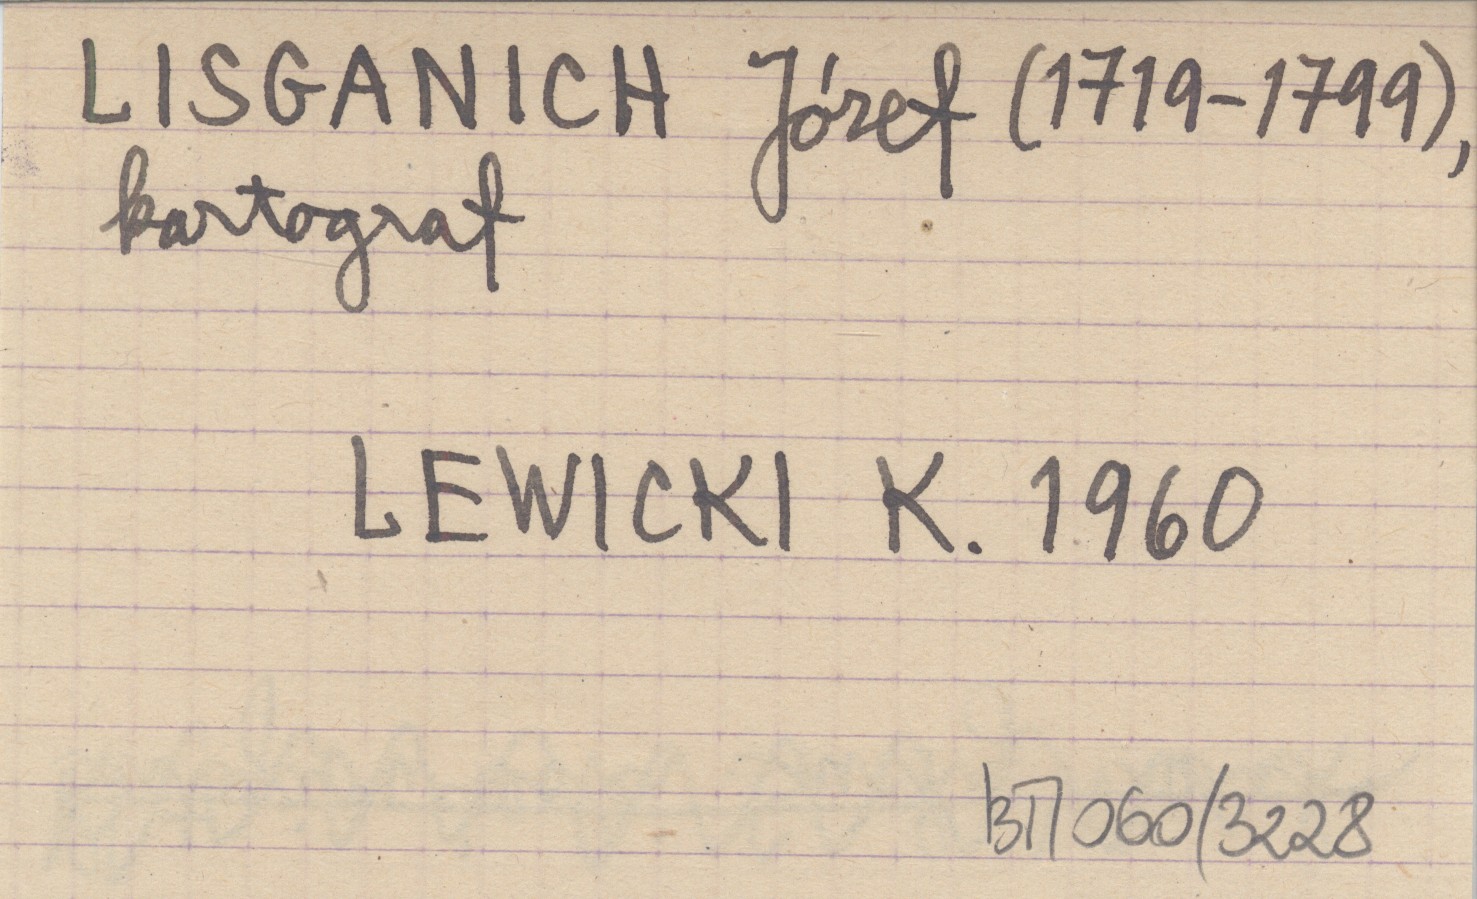 LISGANICH Józef (1719-1799),
kartograf
LEWICKI K. 1960
060/3228